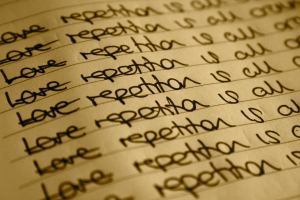 Love repetition is all
Love repetition is all
Love repetition is all
Love repetition is all
Love repetition is all
Love repetition is all
Love repetition is all
Love repetition is